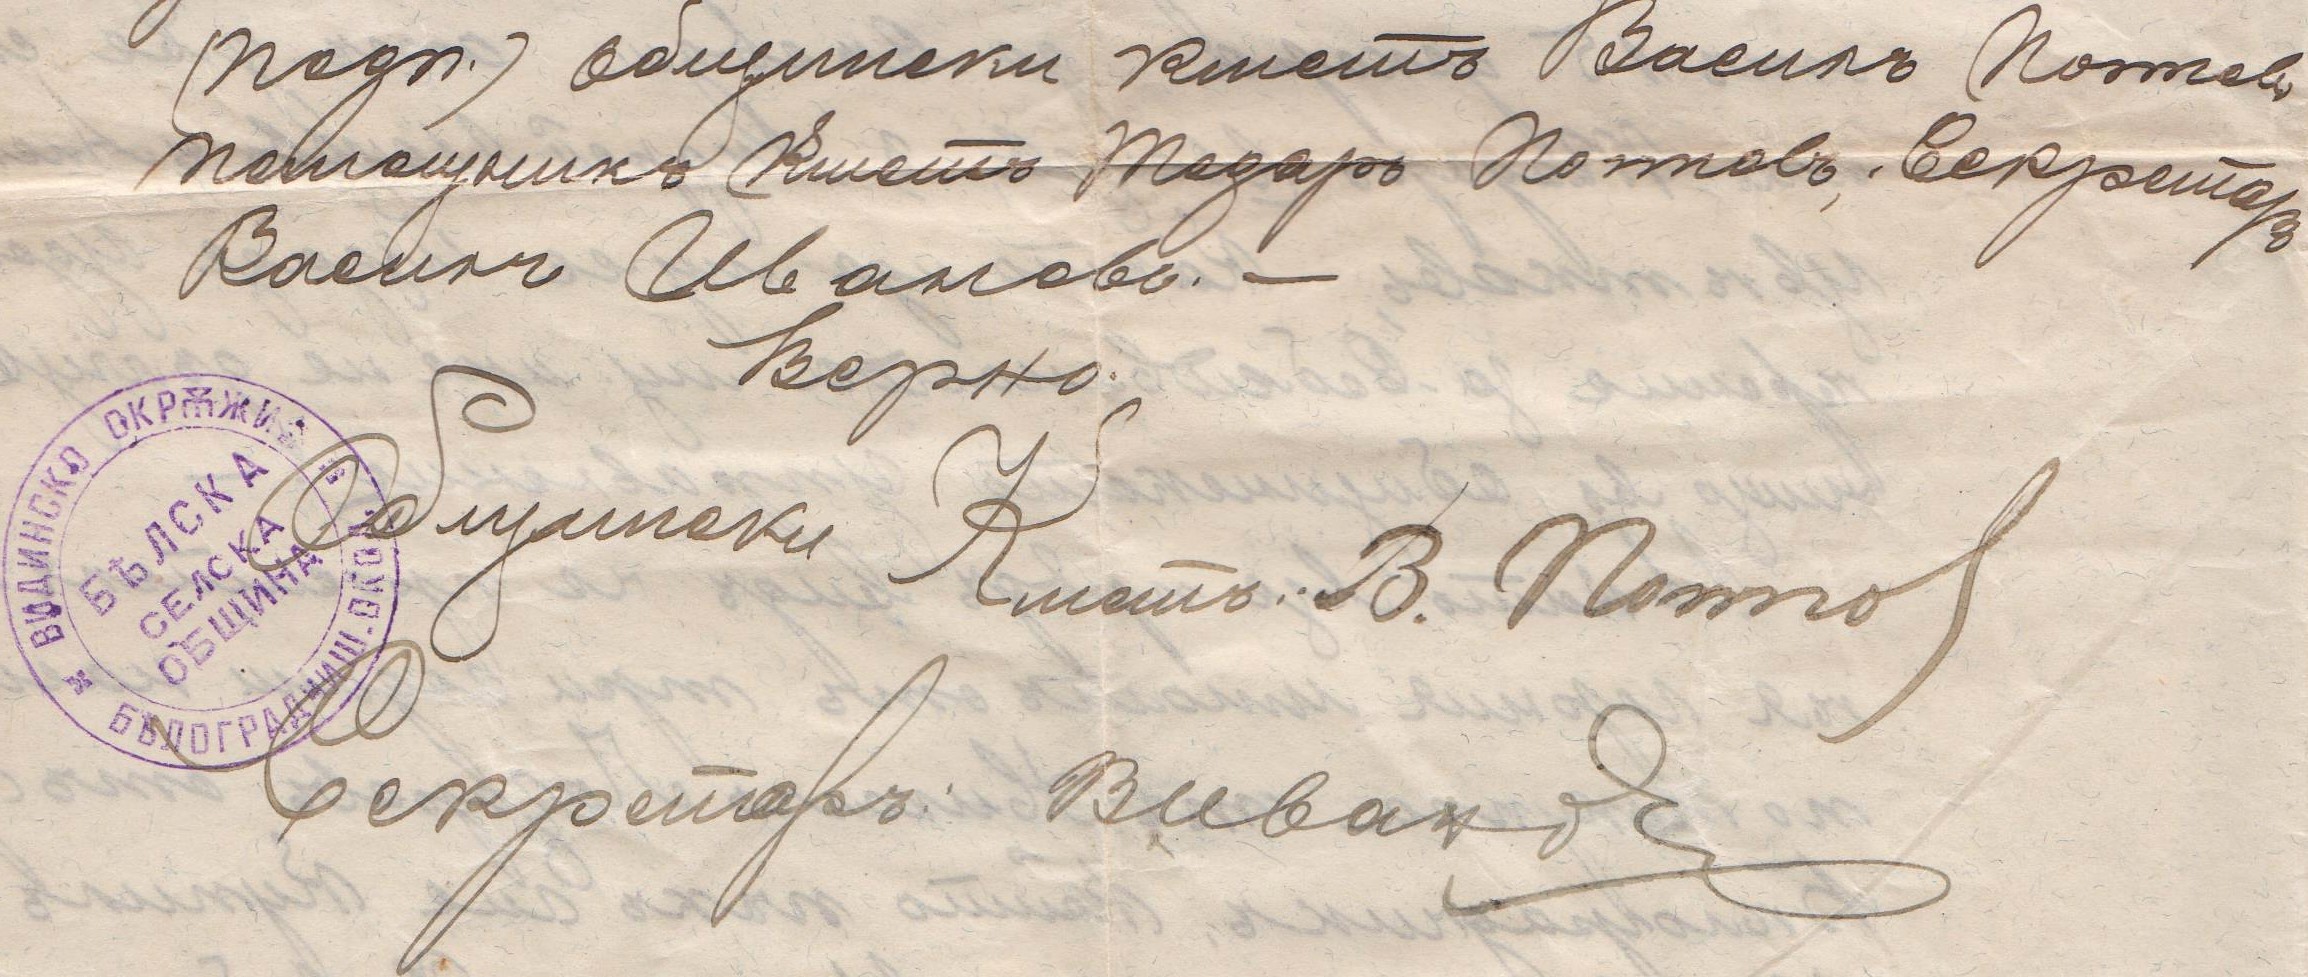 (подп.) Общински кметъ Василъ Поповъ,
помощникъ Кметъ Тодоръ Поповъ, Секретаръ
Василъ Ивановъ. —
Верно:
Общински Кметъ: В. Попов
Секретаръ: В Иванов
ВИДИНСКО ОКРѪЖИЕ
БѢЛОГРАДЧИШ. ОКО
БѢЛСКА
СЕЛСКА
ОБЩИНА